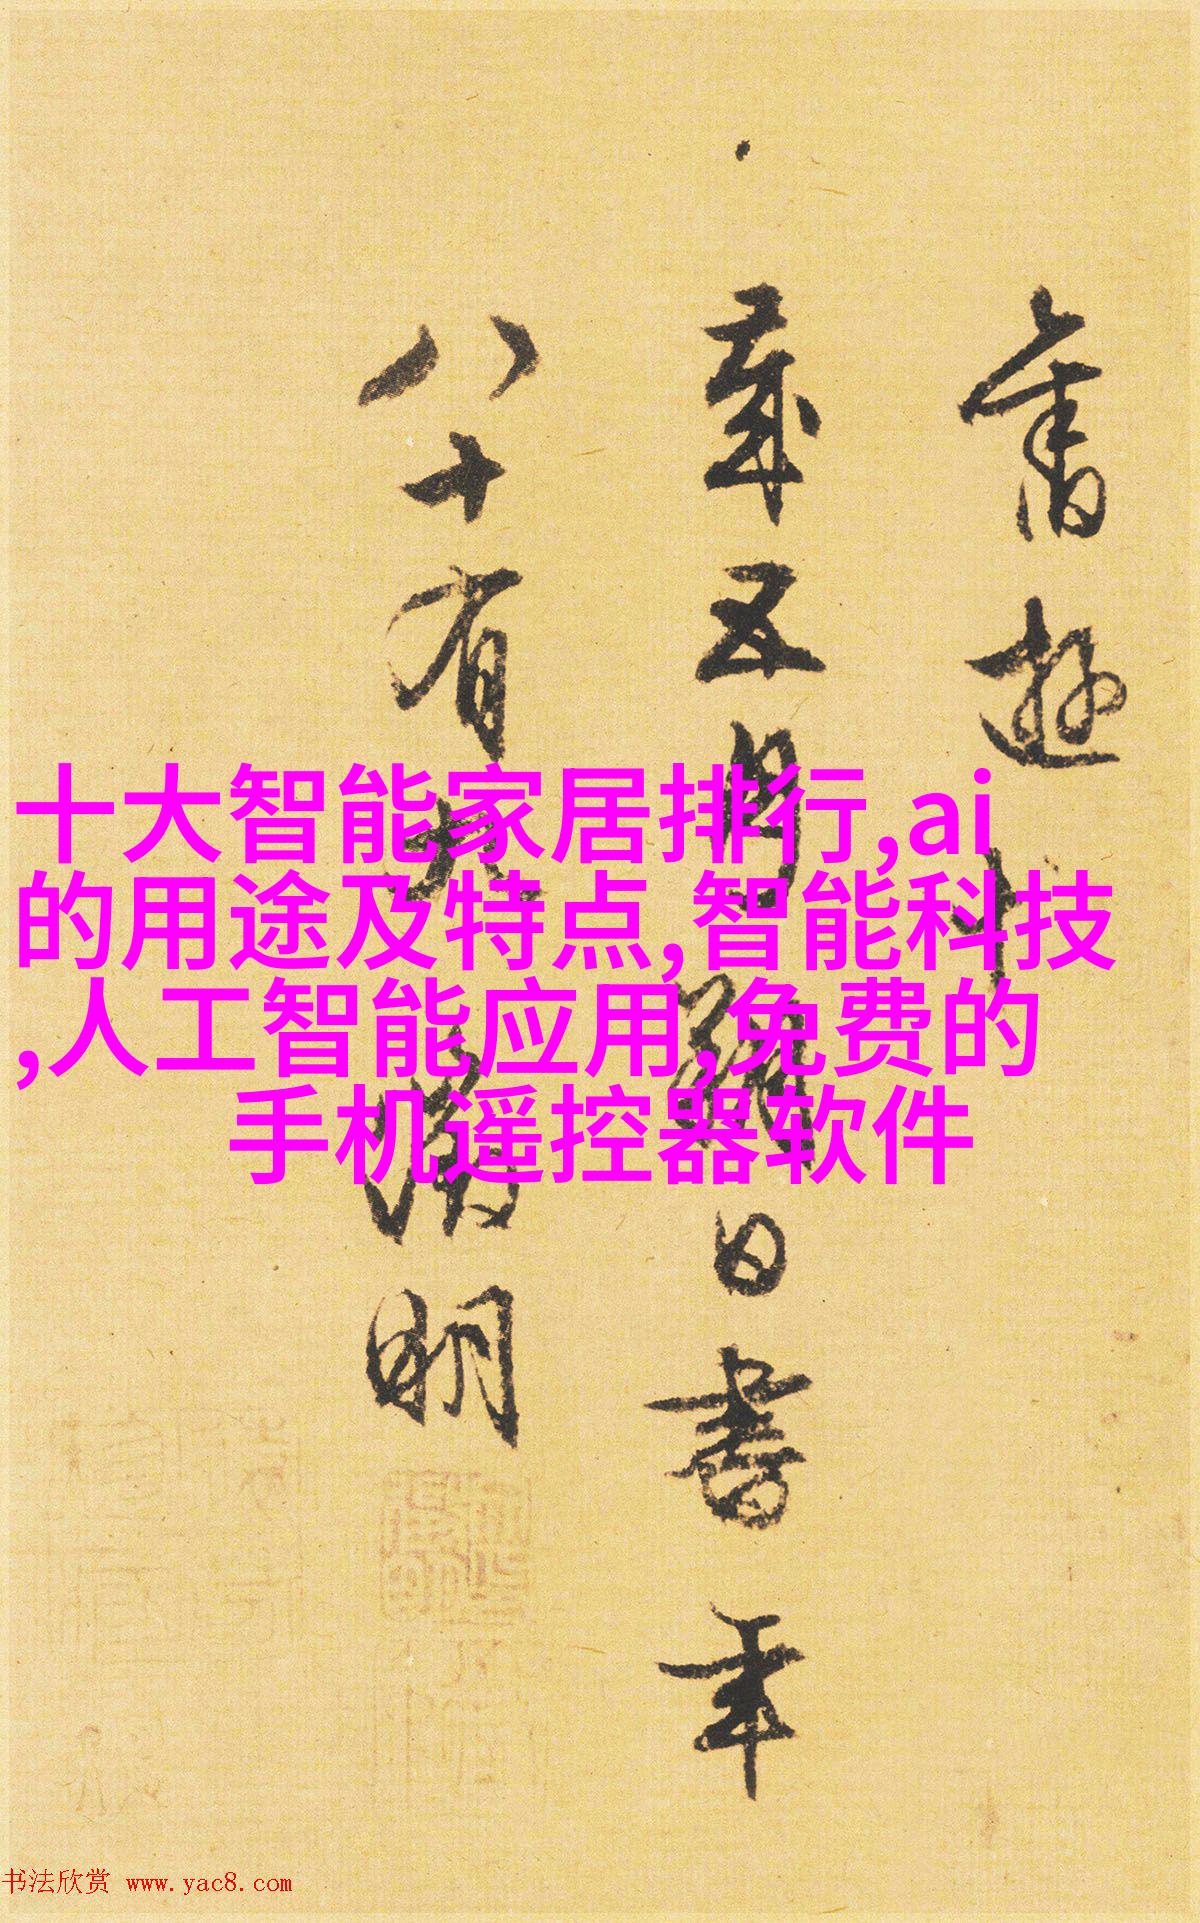 舊遊
歲五月
日書年
八十有六
徵明
十大智能家居排行,ai
的用途及特点,智能科技
,人工智能应用,免费的
手机遥控器软件
书法欣赏 www.yac8.com